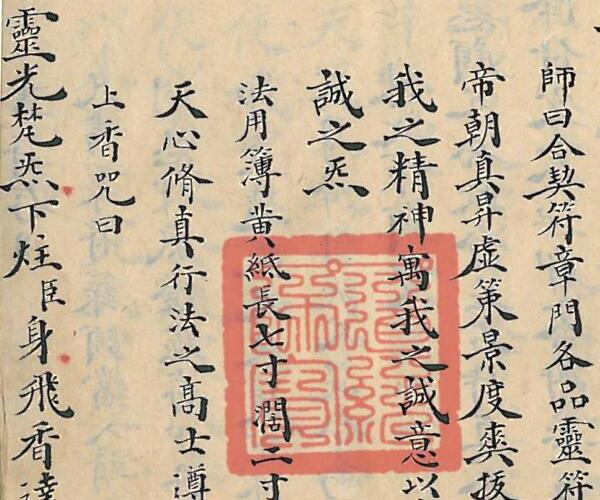 師曰合契符章門各品靈符
帝朝真昇虛策景度爽拔
我之精神寓我之誠意以
誠之炁
法用簿黄紙長七寸濶二寸
天心脩真行法之高士遵
上香咒曰
靈光梵炁下炷臣身飛香達